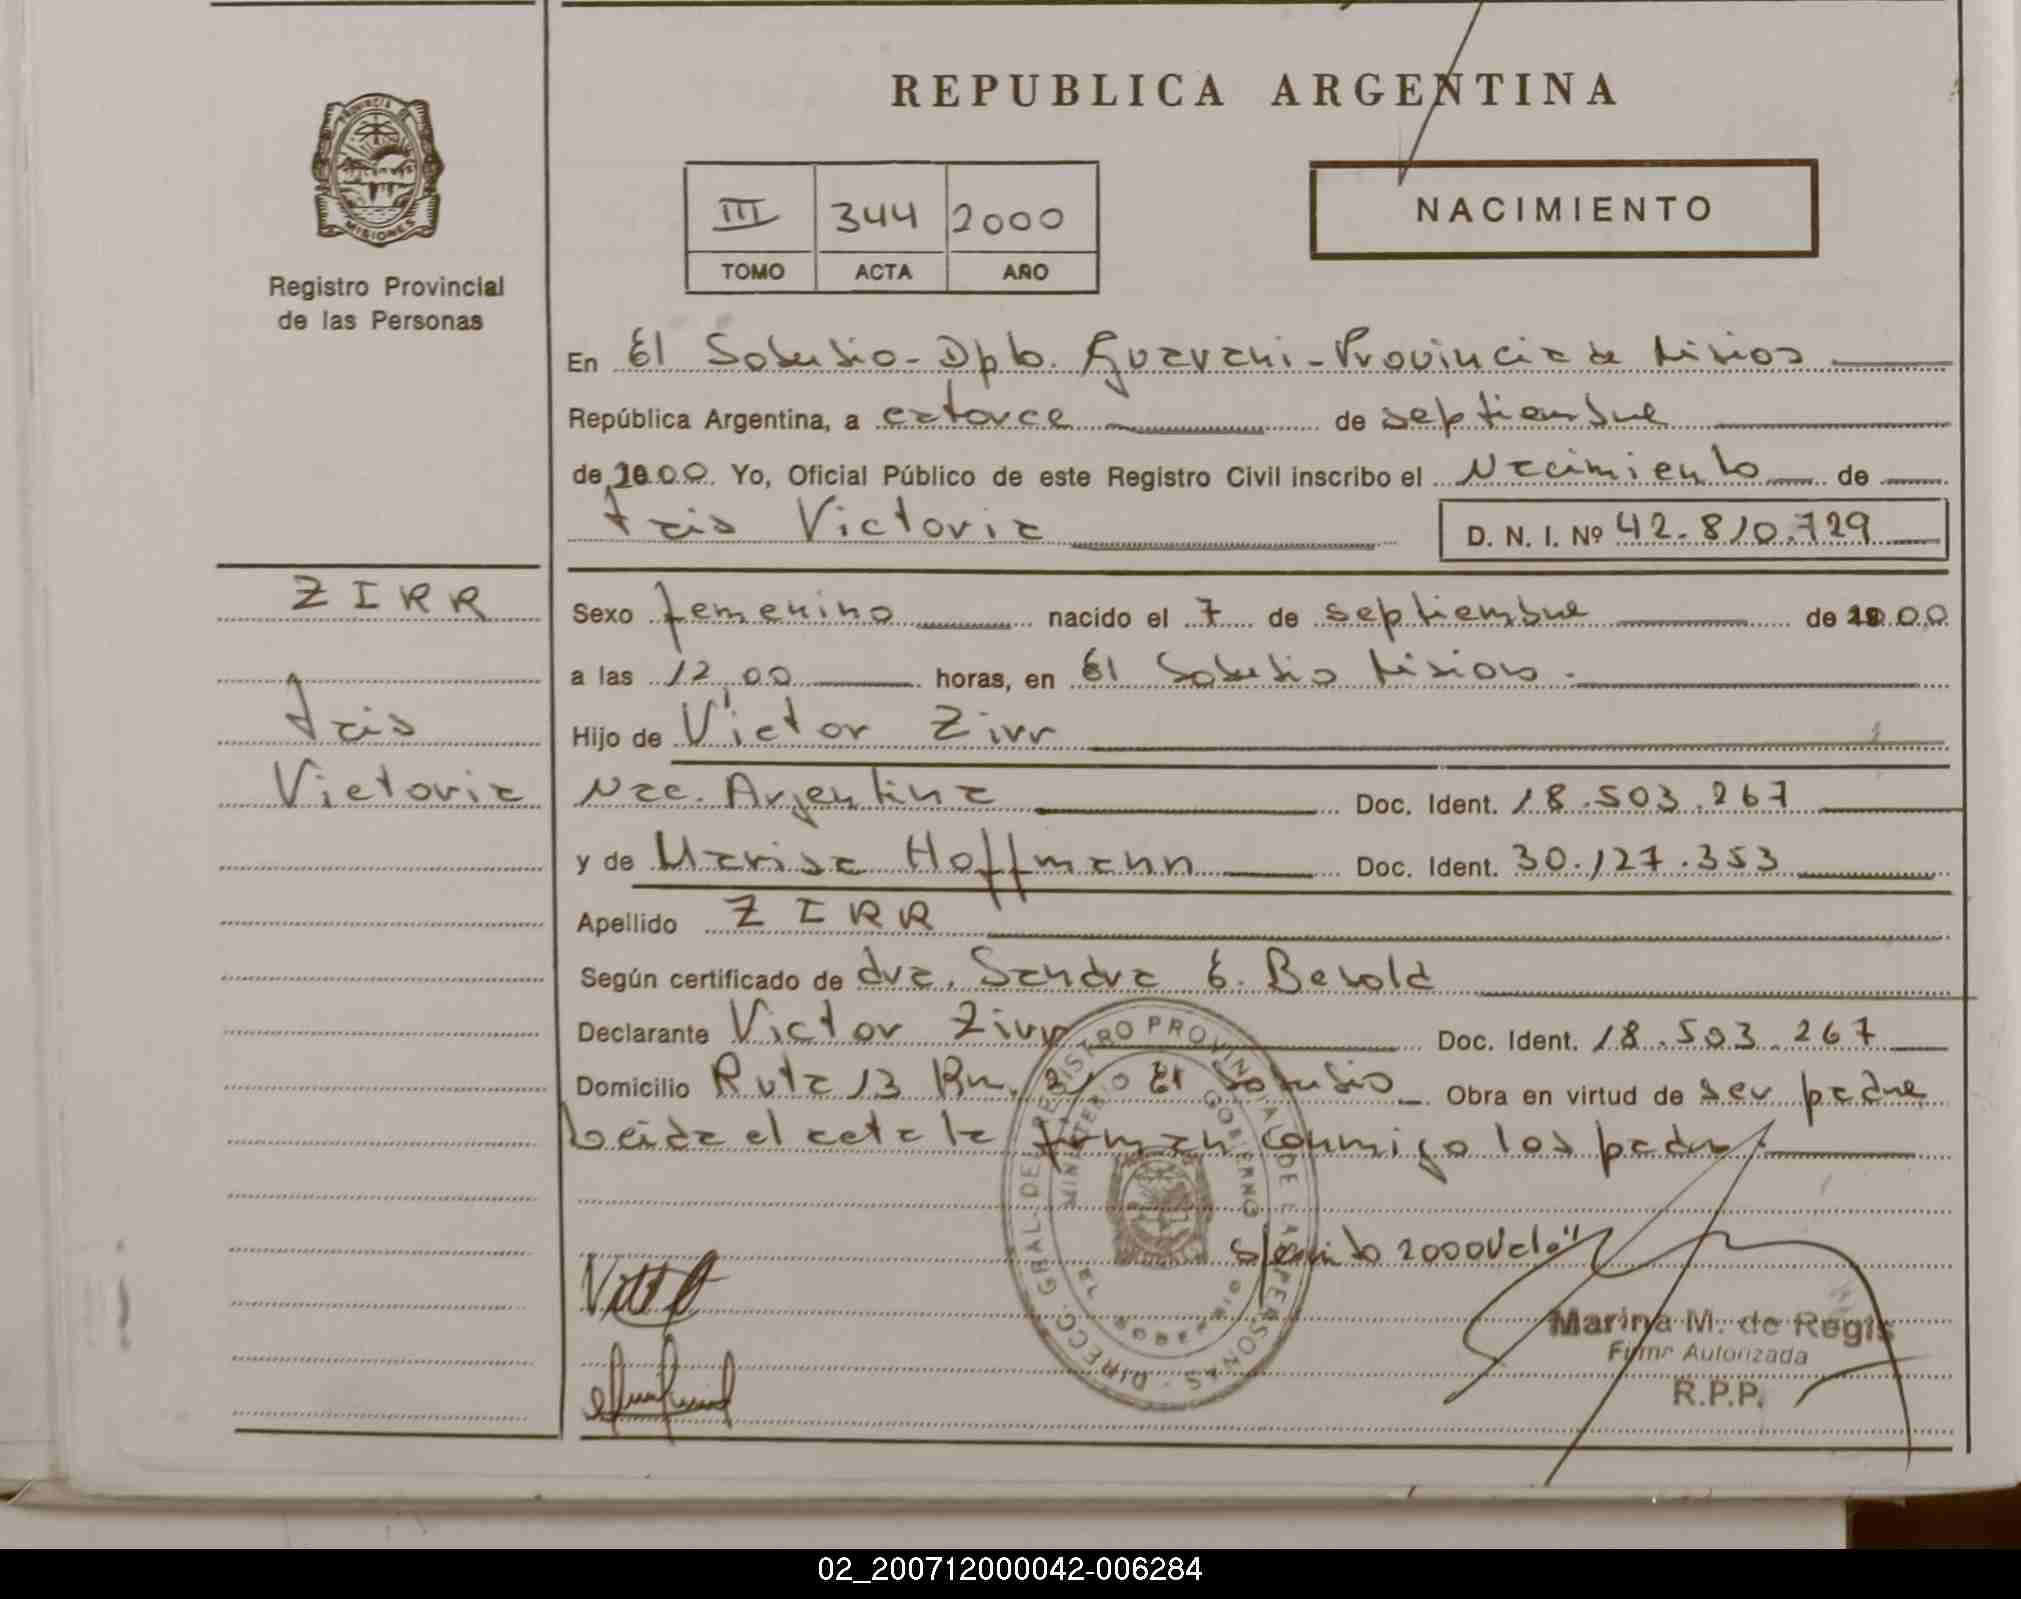 REPUBLICA ARGENTINA
PROVINCIA DE MISIONES
Registro Provincial
de las Personas
III 344 2000
TOMO ACTA AÑO
NACIMIENTO
En El Soberbio - Dpto. Guarani - Provincia de Misiones
República Argentina, a catorce de septiembre
de 2000. Yo, Oficial Público de este Registro Civil inscribo el Nacimiento de
Tais Victoria D. N. I. Nº 42.810.729
ZIRR
Tais
Victoria
Sexo femenino nacido el 7 de septiembre de 2000
a las 12,00 horas, en El Soberbio Misiones.
Hijo de Victor Zirr
Nac. Argentina Doc. Ident. 18.503.267
y de Marisa Hoffmann Doc. Ident. 30.127.353
Apellido ZIRR
Según certificado de dra. Sandra E.
Declarante Victor Zirr Doc. Ident. 18.503.267
Domicilio Ruta 13 Km. El Soberbio Obra en virtud de ser padre
Leida el acta la firman conmigo los padres.
2000 Vale"
DIRECC. GRAL. DE REGISTRO PROVINCIAL DE LAS PERSONAS
MINISTERIO GOBIERNO
Marina M. de Regis
Firma Autorizada
R.P.P.
02_200712000042-006284